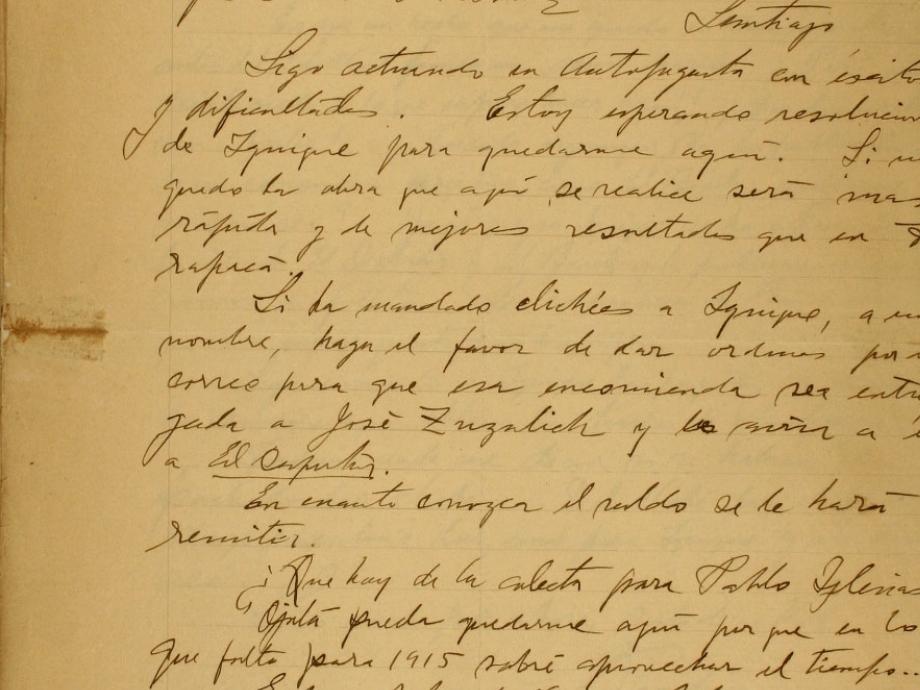 Santiago
Sigo actuando en Antofagasta con éxito
y dificultades. Estoy esperando resolucion
de Iquique para quedarme aquí. Si
quedo la obra que aquí se realice será mas
rápida y de mejores resultados que en
rapacá.
Si ha mandado clichées a Iquique, a
nombre, haga el favor de dar ordenes por
correo para que esa encomienda sea entre
gada a José Zuzulich y a
a El
En cuanto conozca el saldo se le hará
remitir.
¿Que hay de la colecta para Pablo Iglesias
Ojalá pueda quedarme aquí porque en lo
que falta para 1915 sabré aprovechar el tiempo..